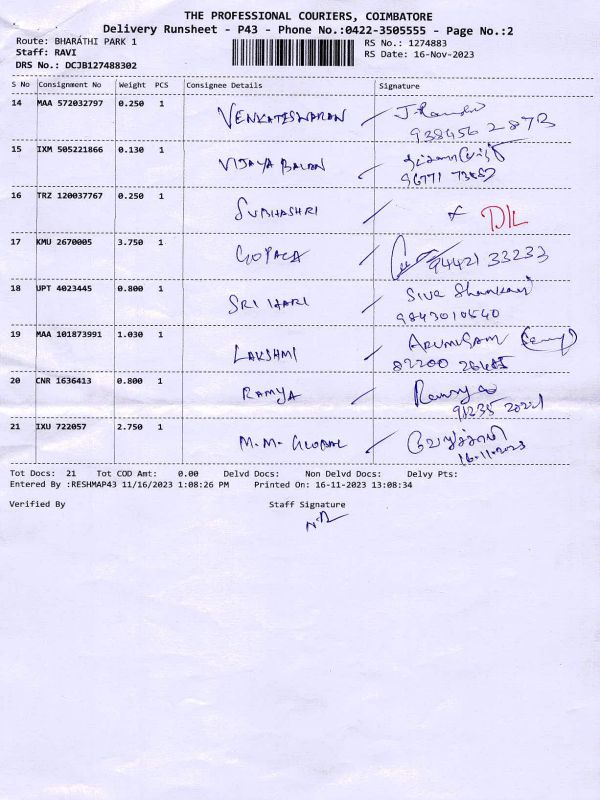 THE PROFESSIONAL COURIERS, COIMBATORE
Delivery Runsheet - P43 - Phone No.:0422-3505555 - Page No.:2
Route: BHARATHI PARK 1 RS No.: 1274883
Staff: RAVI RS Date: 16-Nov-2023
DRS No.: DCJB127488302
S No Consignment No Weight PCS Consignee Details Signature
14 MAA 572032797 0.250 1 VENKATESWARAN
938456 2873
15 IXM 505221866 0.130 1 VIJAYA BALAN
96771
16 TRZ 120037767 0.250 1 SUBHASHRI D/L
17 KMU 2670005 3.750 1 GOPALA 94421 33233
18 UPT 4023445 0.800 1 SRI HARI Siva Shankari
9843010540
19 MAA 101873991 1.030 1 LAKSHMI ARUMUGAM
82200
20 CNR 1636413 0.800 1 RAMYA Ramya
91235 20221
21 IXU 722057 2.750 1 M.M. GLOBAL
16-11-2023
Tot Docs: 21 Tot COD Amt: 0.00 Delvd Docs: Non Delvd Docs: Delvy Pts:
Entered By :RESHMAP43 11/16/2023 1:08:26 PM Printed On: 16-11-2023 13:08:34
Verified By Staff Signature